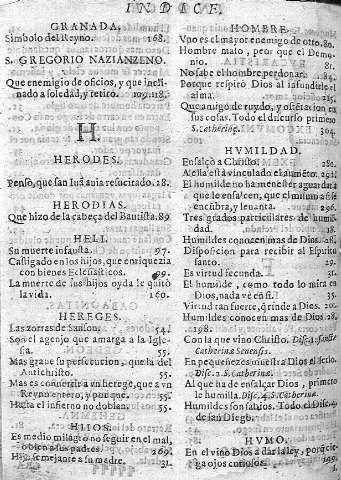 INDICE.
GRANADA.
Simbolo del Reyno. 168.
S. GREGORIO NAZIANZENO.
Que enemigio de oficios, y que incli
nado a soledad, y retiro. 118.
H.
HERODES.
Pensó, que san Iuā avia resucitado. 28.
HERODIAS.
Que hizo de la cabeça del Bautista. 89
HELI.
Su muerte infausta. 97.
Castigado en los hijos, que enriquezia
con bienes Eclesiasticos.
La muerte de sus hijos oyda le quitó
la vida. 160.
HEREGES.
Las zorras de Sanson. 54.
Son el agenjo que amarga a la Igle-
sia. 55.
Mas grave su persecucion, que la del
Antichristo. 55.
Mas es convertir a vn herege, que a vn
Reyno entero, y porque. 55.
Hasta el infierno no doblan. 55.
HIJOS.
Es medio milagro no seguir en el mal,
o bien a sus padres. 169.
Hay semejante a su madre. 31.
HOMBRE.
Vno es el mayor enemigo de otro. 80.
Hombre malo, peor que el Demo-
nio. 81.
No sabe el hombre perdonar. 184.
Porque respiró Dios al infundirle el
alma.
Que amigo de ruydo, y
sus cosas. Todo el discurso primero
S. Catherina. 304.
HVMILDAD.
Ensalçó a Christo.
A ella está vinculado el aumēto. 291.
El humilde no ha menester aguardar a
que le ensalcen, que el mismo
encūbra, y levanta.
Tres grados particulares de humil
dad. 18.
Humildes conocen mas de Dios. 28.
Disposicion para recibir al Espiritu
santo.
Es virtud fecunda. 31.
El humilde, como todo lo mira en
Dios, nada vé en si. 35.
Virtud tan fuerte, q̄ rinde a Dios. 202.
Humildes conocen mas de Dios. 28
298.
Con la que vino Christo. Disc. 1. Sanctæ
Catherinæ Senensis.
En pequeñezes muestra Dios el
Disc. 2. S. Catherinæ.
Al que ha de ensalçar Dios, primero
le humilla. Disc. 4. S. Catherinæ.
Humildes son sabios. Todo el Disc.
de san Diego.
HVMO.
En el vino Dios a dar la ley, porq̄ cie
ga ojos curiosos.